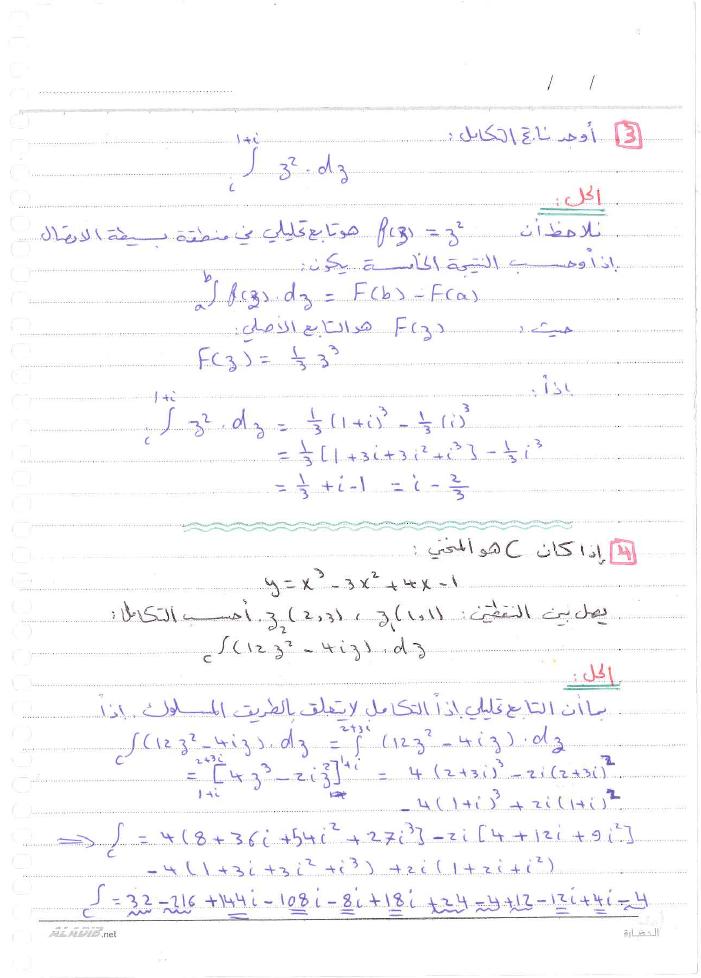 / /
3 أوجد ناتج التكامل:
∫_i^{1+i} z² · dz
الحل:
نلاحظ أن f(z) = z² هو تابع تحليلي في منطقة بسيطة الاتصال
إذاً وحسب النتيجة الخامسة يكون:
∫_a^b f(z) · dz = F(b) - F(a)
حيث F(z) هو التابع الأصلي:
F(z) = 1/3 z³
إذاً:
∫_i^{1+i} z² · dz = 1/3 (1+i)³ - 1/3 (i)³
= 1/3 [1+3i+3i²+i³] - 1/3 i³
= 1/3 + i - 1 = i - 2/3
4 إذا كان C هو المنحني:
y = x³ - 3x² + 4x - 1
يصل بين النقطتين: z₁(1,1) ، z₂(2,3). أحسب التكامل:
∫_C (12z² - 4iz) · dz
الحل:
بما أن التابع تحليلي إذاً التكامل لا يتعلق بالطريق المسلوك. إذاً
∫_C (12z² - 4iz) · dz = ∫^{2+3i} (12z² - 4iz) · dz
= [4z³ - 2iz²]_{1+i}^{2+3i} = 4(2+3i)³ - 2i(2+3i)²
- 4(1+i)³ + 2i(1+i)²
⇒ ∫_C = 4(8+36i+54i²+27i³] - 2i[4+12i+9i²]
- 4(1+3i+3i²+i³) + 2i(1+2i+i²)
∫_C = 32 - 216 + 144i - 108i - 8i + 18i + 24 - 4 + 12 - 12i + 4i - 4
ALADIB.net
الحضارة